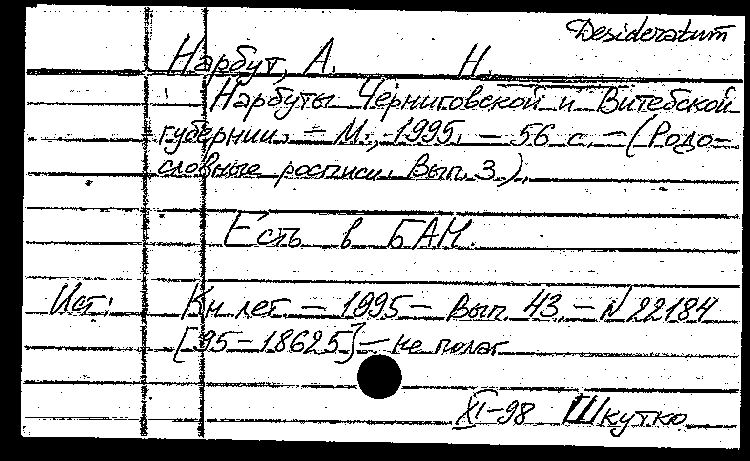 Desideratum
Нарбут, А. Н.
Нарбуты Черниговской и Витебской
губернии. – М., 1995. – 56 с. – (Родо-
словные росписи. Вып. 3.).
Есть в БАН.
Ист: Кн лет. – 1995 – Вып. 43. – N 22184
[95-18625] – не полаг
XI-98 Шкутко